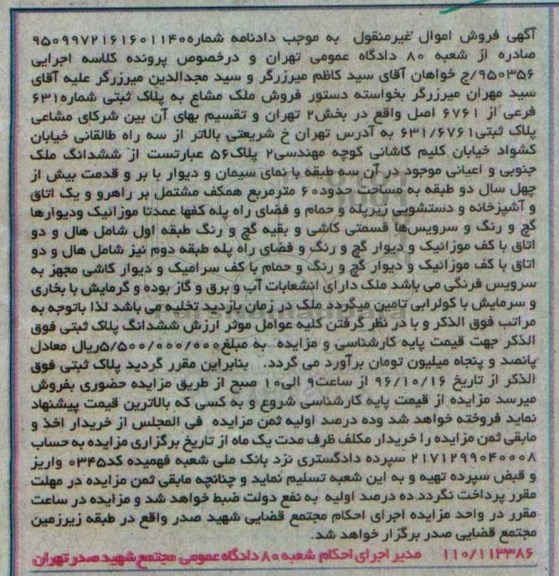 آگهی فروش اموال غیرمنقول به موجب دادنامه شماره۹۵۰۹۹۷۲۱۶۱۶۰۱۱۴۰
صادره از شعبه ۸۰ دادگاه عمومی تهران و درخصوص پرونده کلاسه اجرایی
۹۵۰۳۵۶/ج خواهان آقای سید کاظم میرزرگر و سید مجدالدین میرزرگر علیه آقای
سید مهران میرزرگر بخواسته دستور فروش ملک مشاع به پلاک ثبتی شماره۶۳۱
فرعی از ۶۷۶۱ اصل واقع در بخش۲ تهران و تقسیم بهای آن بین شرکای مشاعی
پلاک ثبتی۶۳۱/۶۷۶۱ به آدرس تهران خ شریعتی بالاتر از سه راه طالقانی خیابان
کشواد خیابان کلیم کاشانی کوچه مهندسی۲ پلاک۵۶ عبارتست از ششدانگ ملک
جنوبی و اعیانی موجود در آن سه طبقه با نمای سیمان و دیوار با بر و قدمت بیش از
چهل سال دو طبقه به مساحت حدود۶۰ مترمربع همکف مشتمل بر راهرو و یک اتاق
و آشپزخانه و دستشویی زیرپله و حمام و فضای راه پله کفها عمدتا موزائیک ودیوارها
گچ و رنگ و سرویس‌ها قسمتی کاشی و بقیه گچ و رنگ طبقه اول شامل هال و دو
اتاق با کف موزائیک و دیوار گچ و رنگ و فضای راه پله طبقه دوم نیز شامل هال و دو
اتاق با کف موزائیک و دیوار گچ و رنگ و حمام با کف سرامیک و دیوار کاشی مجهز به
سرویس فرنگی می باشد ملک دارای انشعابات آب و برق و گاز بوده و گرمایش با بخاری
و سرمایش با کولرآبی تامین میگردد ملک در زمان بازدید تخلیه می باشد لذا باتوجه به
مراتب فوق الذکر و با در نظر گرفتن کلیه عوامل موثر ارزش ششدانگ پلاک ثبتی فوق
الذکر جهت قیمت پایه کارشناسی و مزایده به مبلغ۵/۵۰۰/۰۰۰/۰۰۰ریال معادل
پانصد و پنجاه میلیون تومان برآورد می گردد. بنابراین مقرر گردید پلاک ثبتی فوق
الذکر از تاریخ ۹۶/۱۰/۱۶ از ساعت۹ الی۱۰ صبح از طریق مزایده حضوری بفروش
میرسد مزایده از قیمت پایه کارشناسی شروع و به کسی که بالاترین قیمت پیشنهاد
نماید فروخته خواهد شد وده درصد اولیه ثمن مزایده فی المجلس از خریدار اخذ و
مابقی ثمن مزایده را خریدار مکلف ظرف مدت یک ماه از تاریخ برگزاری مزایده به حساب
۲۱۷۱۲۹۹۰۴۰۰۰۸ سپرده دادگستری نزد بانک ملی شعبه فهمیده کد۰۳۴۵ واریز
و قبض سپرده تهیه و به این شعبه تسلیم نماید و چنانچه مابقی ثمن مزایده در مهلت
مقرر پرداخت نگردد ده درصد اولیه به نفع دولت ضبط خواهد شد و مزایده در ساعت
مقرر در واحد مزایده اجرای احکام مجتمع قضایی شهید صدر واقع در طبقه زیرزمین
مجتمع قضایی صدر برگزار خواهد شد.
۱۱۰/۱۱۳۳۸۶ مدیر اجرای احکام شعبه ۸۰ دادگاه عمومی مجتمع شهید صدر تهران